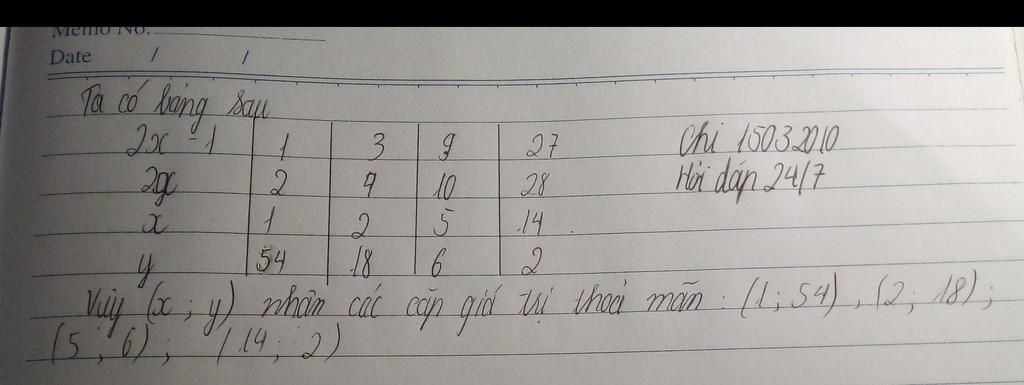 Memo No.
Date / /
Ta có bảng sau
2x - 1 1 3 9 27
2x 2 4 10 28
x 1 2 5 14
y 54 18 6 2
Chi 15032010
Hỏi đáp 24/7
Vậy (x ; y) nhận các cặp giá trị thoả mãn : (1 ; 54) , (2 ; 18) ;
(5 ; 6) ; (14 ; 2)